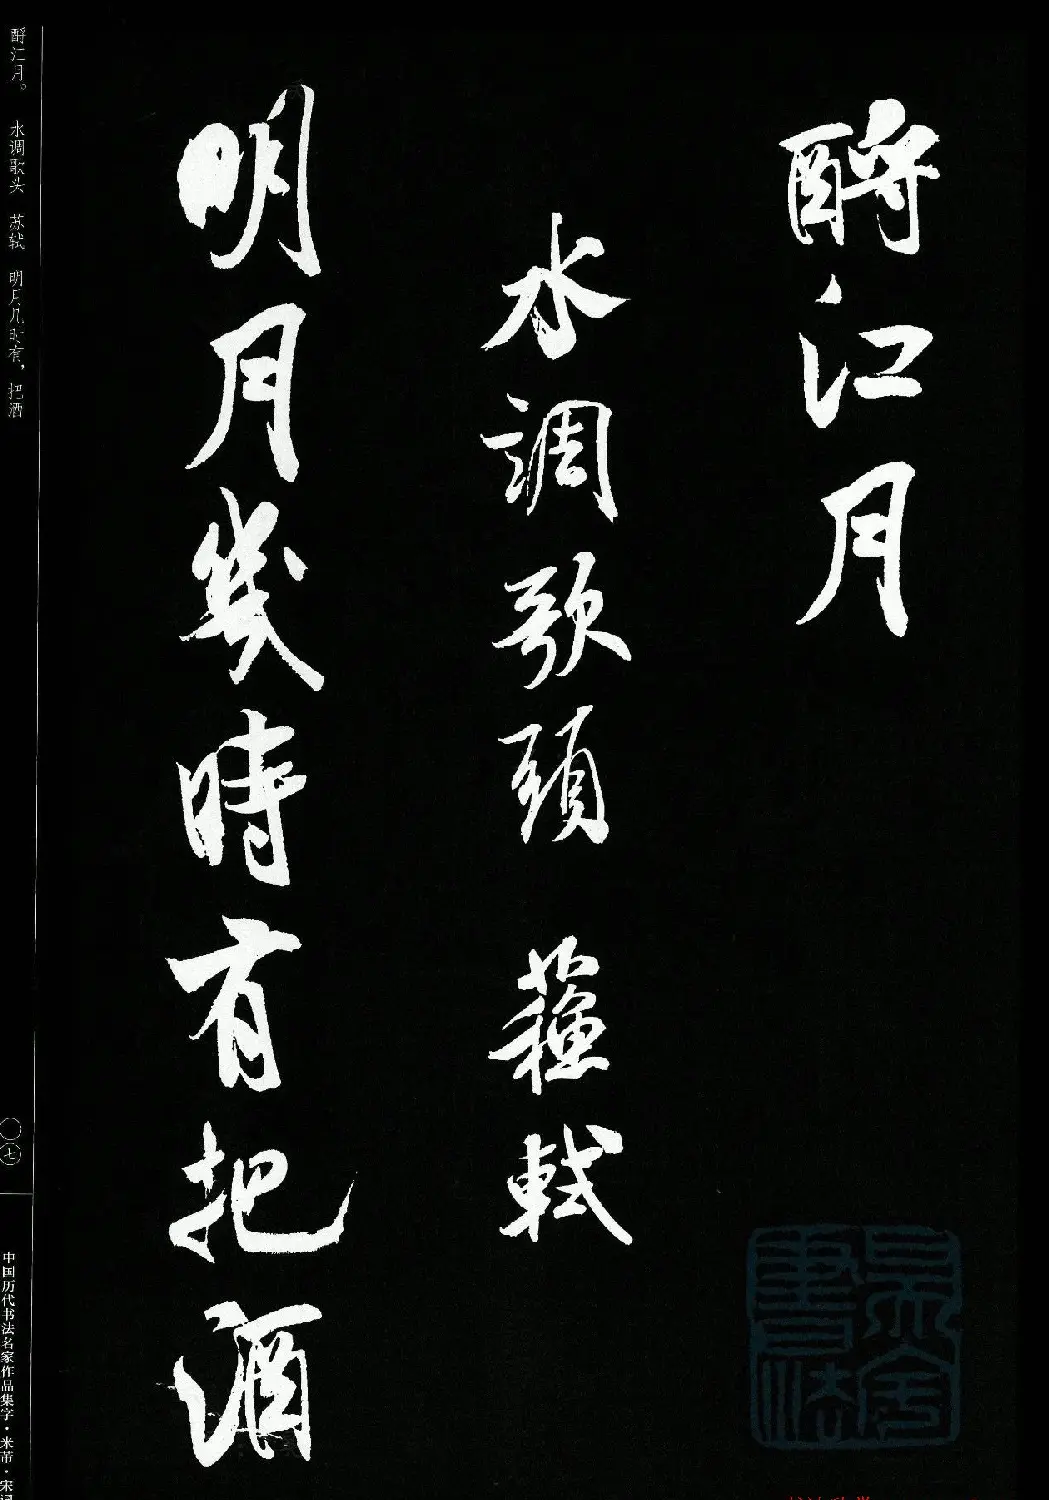 酹江月
水調歌頭 蘇軾
明月幾時有把酒
酹江月。 水调歌头 苏轼 明月几时有，把酒
〇七
中国历代书法名家作品集字·米芾·宋词